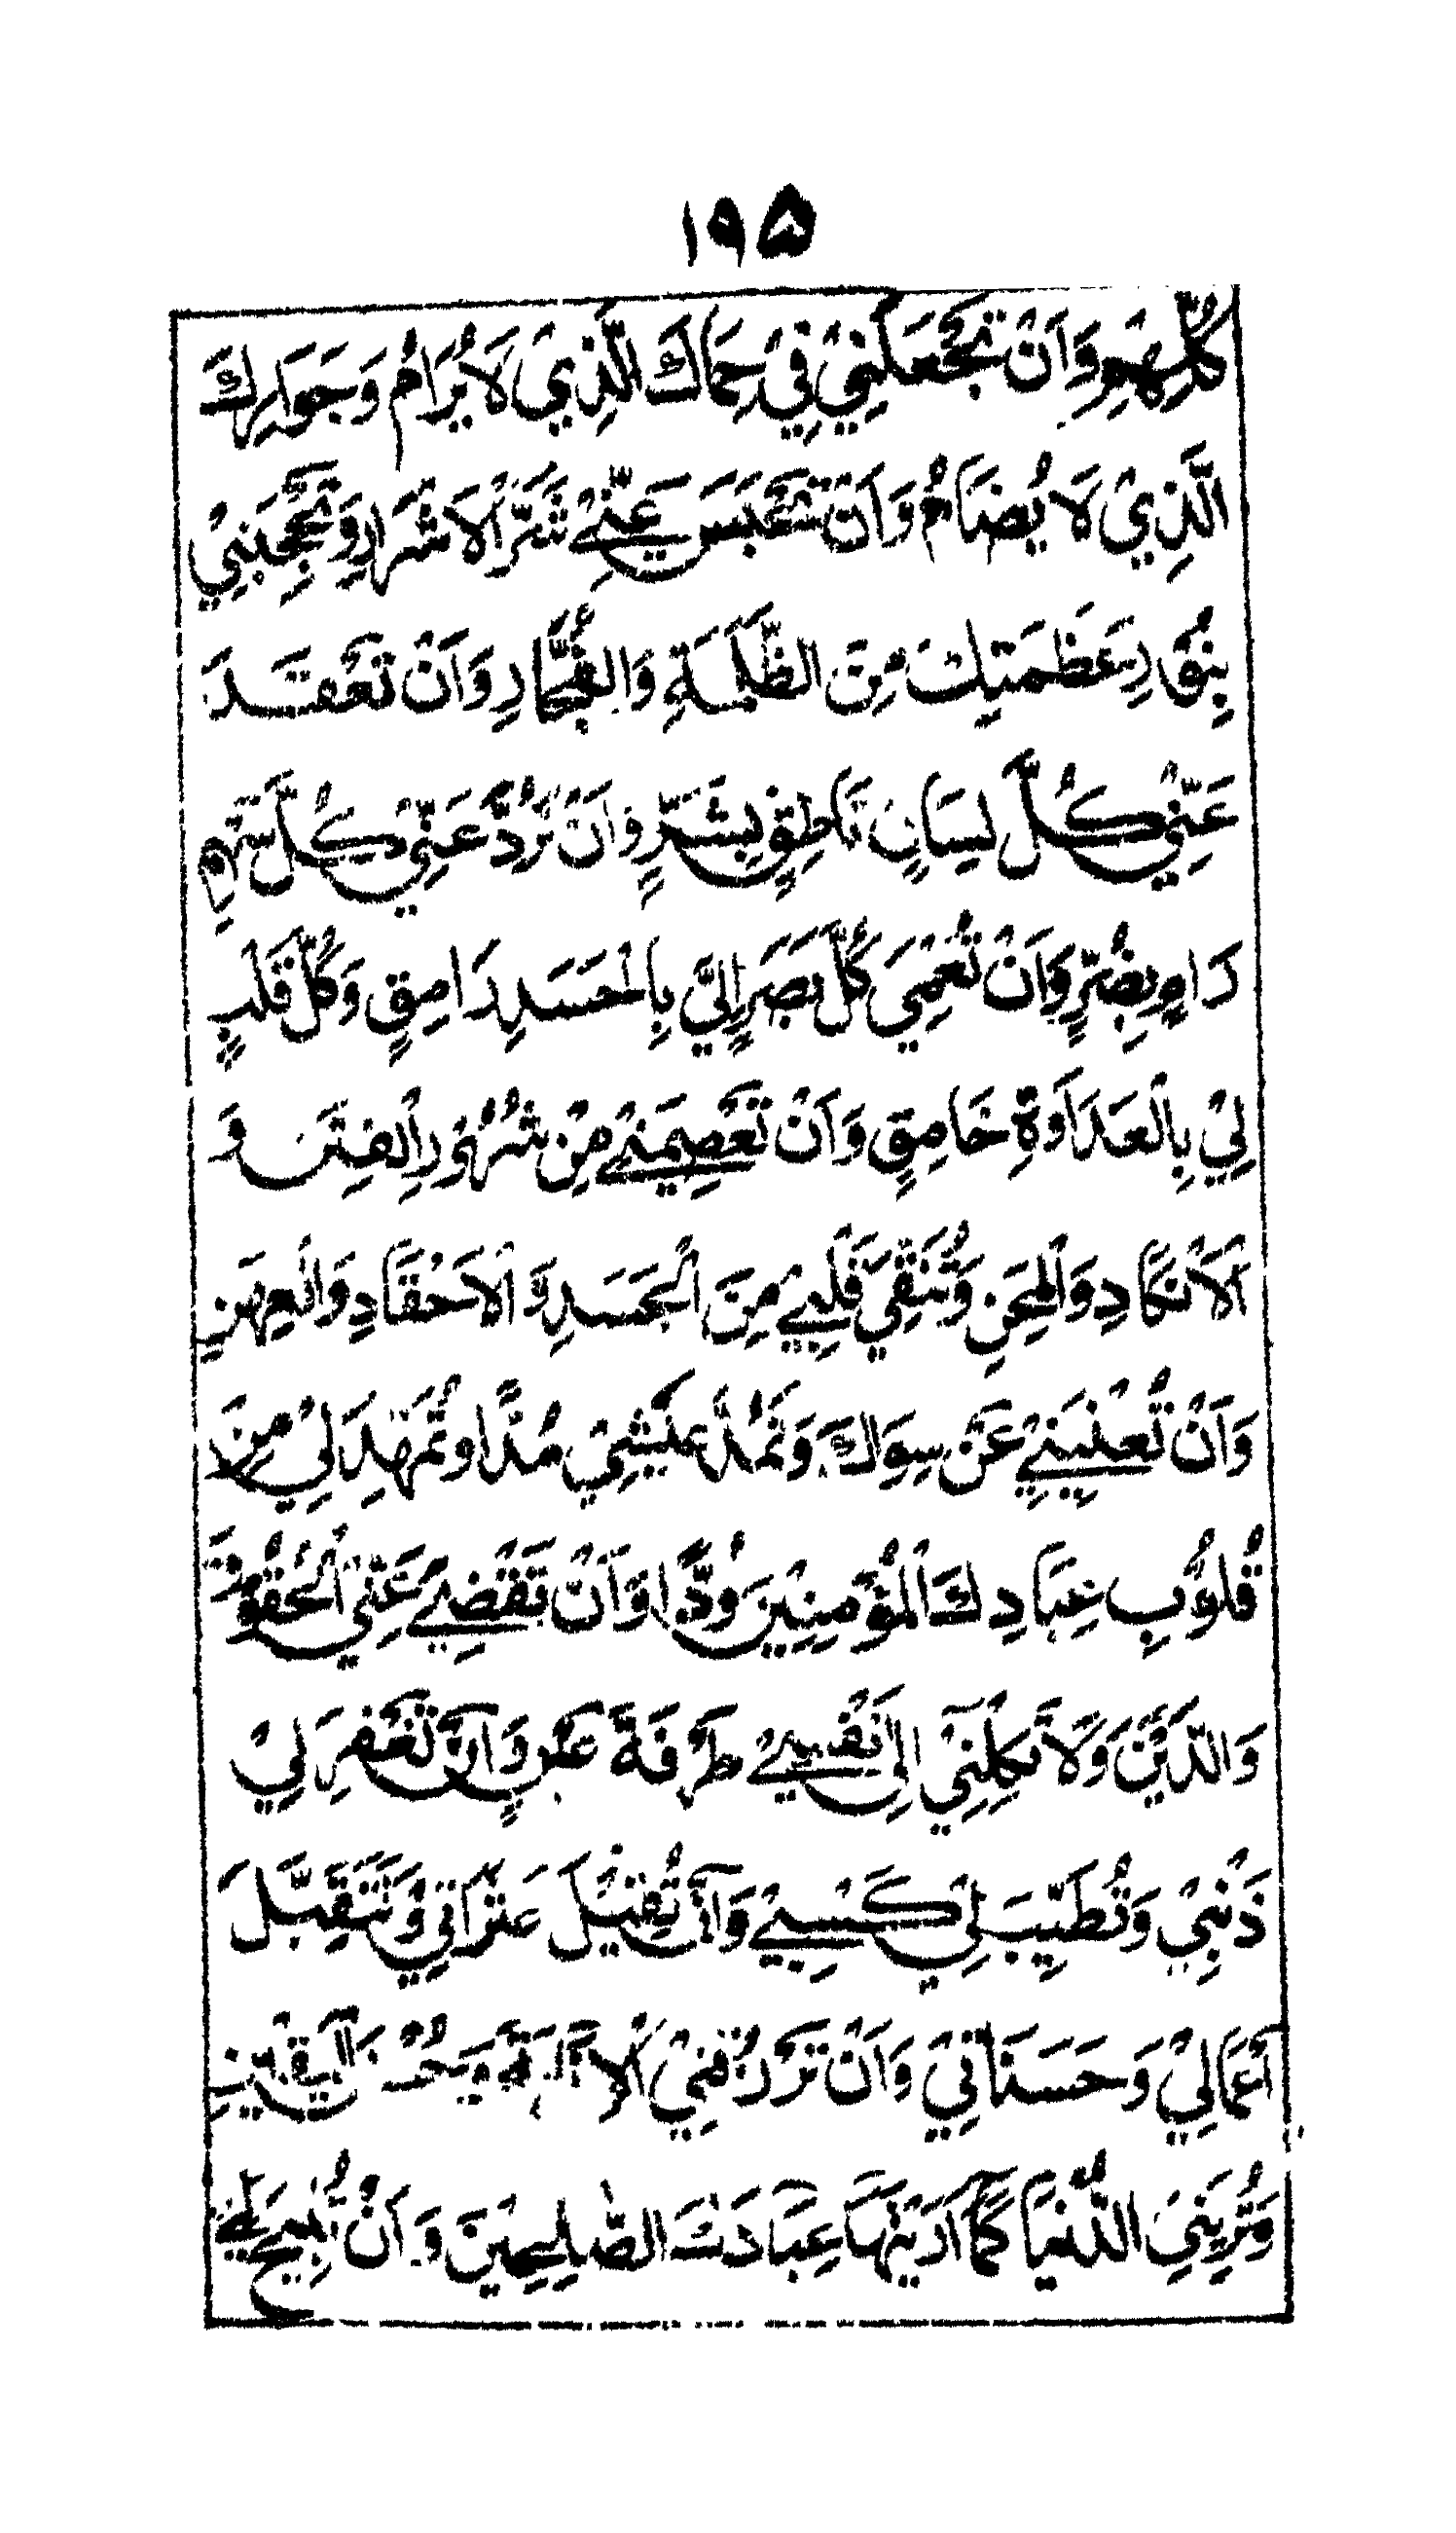 ١٩٥
كُلِّهِمِ وَاَنْ تَجْعَلَنِيْ فِيْ حِمَاكَ الَّذِيْ لَا يُرَامُ وَجِوَارِكَ
الَّذِيْ لَا يُضَامُ وَاَنْ تَحْبَسَ عَنِّيْ شَرَّ الْاَشْرَارِ وَتَحْجِبَنِيْ
بِنُوْرِ عَظَمَتِكَ مِنَ الظَّلَمَةِ وَالْفُجَّارِ وَاَنْ تَعْقِدَ
عَنِّيْ كُلَّ لِسَانٍ نَاطِقٍ بِشَرٍّ وَاَنْ تَرُدَّ عَنِّيْ كُلَّ سَهْمٍ
رَامٍ بِضُرٍّ وَاَنْ تُعْمِيَ كُلَّ بَصَرٍ اِلَيَّ بِالْحَسَدِ رَامِقٍ وَكُلَّ قَلْبٍ
لِيْ بِالْعَدَاوَةِ خَامِقٍ وَاَنْ تَعْصِمَنِيْ مِنْ شُرُوْرِ الْفِتَنِ وَ
الْاَنْكَادِ وَالْمِحَنِ وَتُنَقِّيَ قَلْبِيْ مِنَ الْحَسَدِ وَ الْاَحْقَادِ وَالْعِهَنِ
وَاَنْ تُغْنِيَنِيْ عَنْ سِوَاكَ وَتَمُدَّ عَيْشِيْ مُدًّا وَتُمَهِّدَ لِيْ مِنَ
قُلُوْبِ عِبَادِكَ الْمُؤْمِنِيْنَ وُدًّا وَاَنْ تَقْضِيْ عَنِّي الْحُقُوْقَ
وَالدَّيْنَ وَلَا تَكِلْنِيْ اِلٰى نَفْسِيْ طَرْفَةَ عَيْنٍ وَاَنْ تَغْفِرَ لِيْ
ذَنْبِيْ وَتُطَيِّبَ لِيْ كَسْبِيْ وَاَنْ تُقِيْلَ عَثَرَاتِيْ وَتَتَقَبَّلَ
اَعْمَالِيْ وَحَسَنَاتِيْ وَاَنْ تَرْزُقَنِيْ وَحُسْنَ الْيَقِيْنِ
وَتُرِيَنِيَ الدُّنْيَا كَمَا اَرَيْتَهَا عِبَادَكَ الصّٰلِحِيْنَ وَاَنْ تُبِيْحَ لِيْ